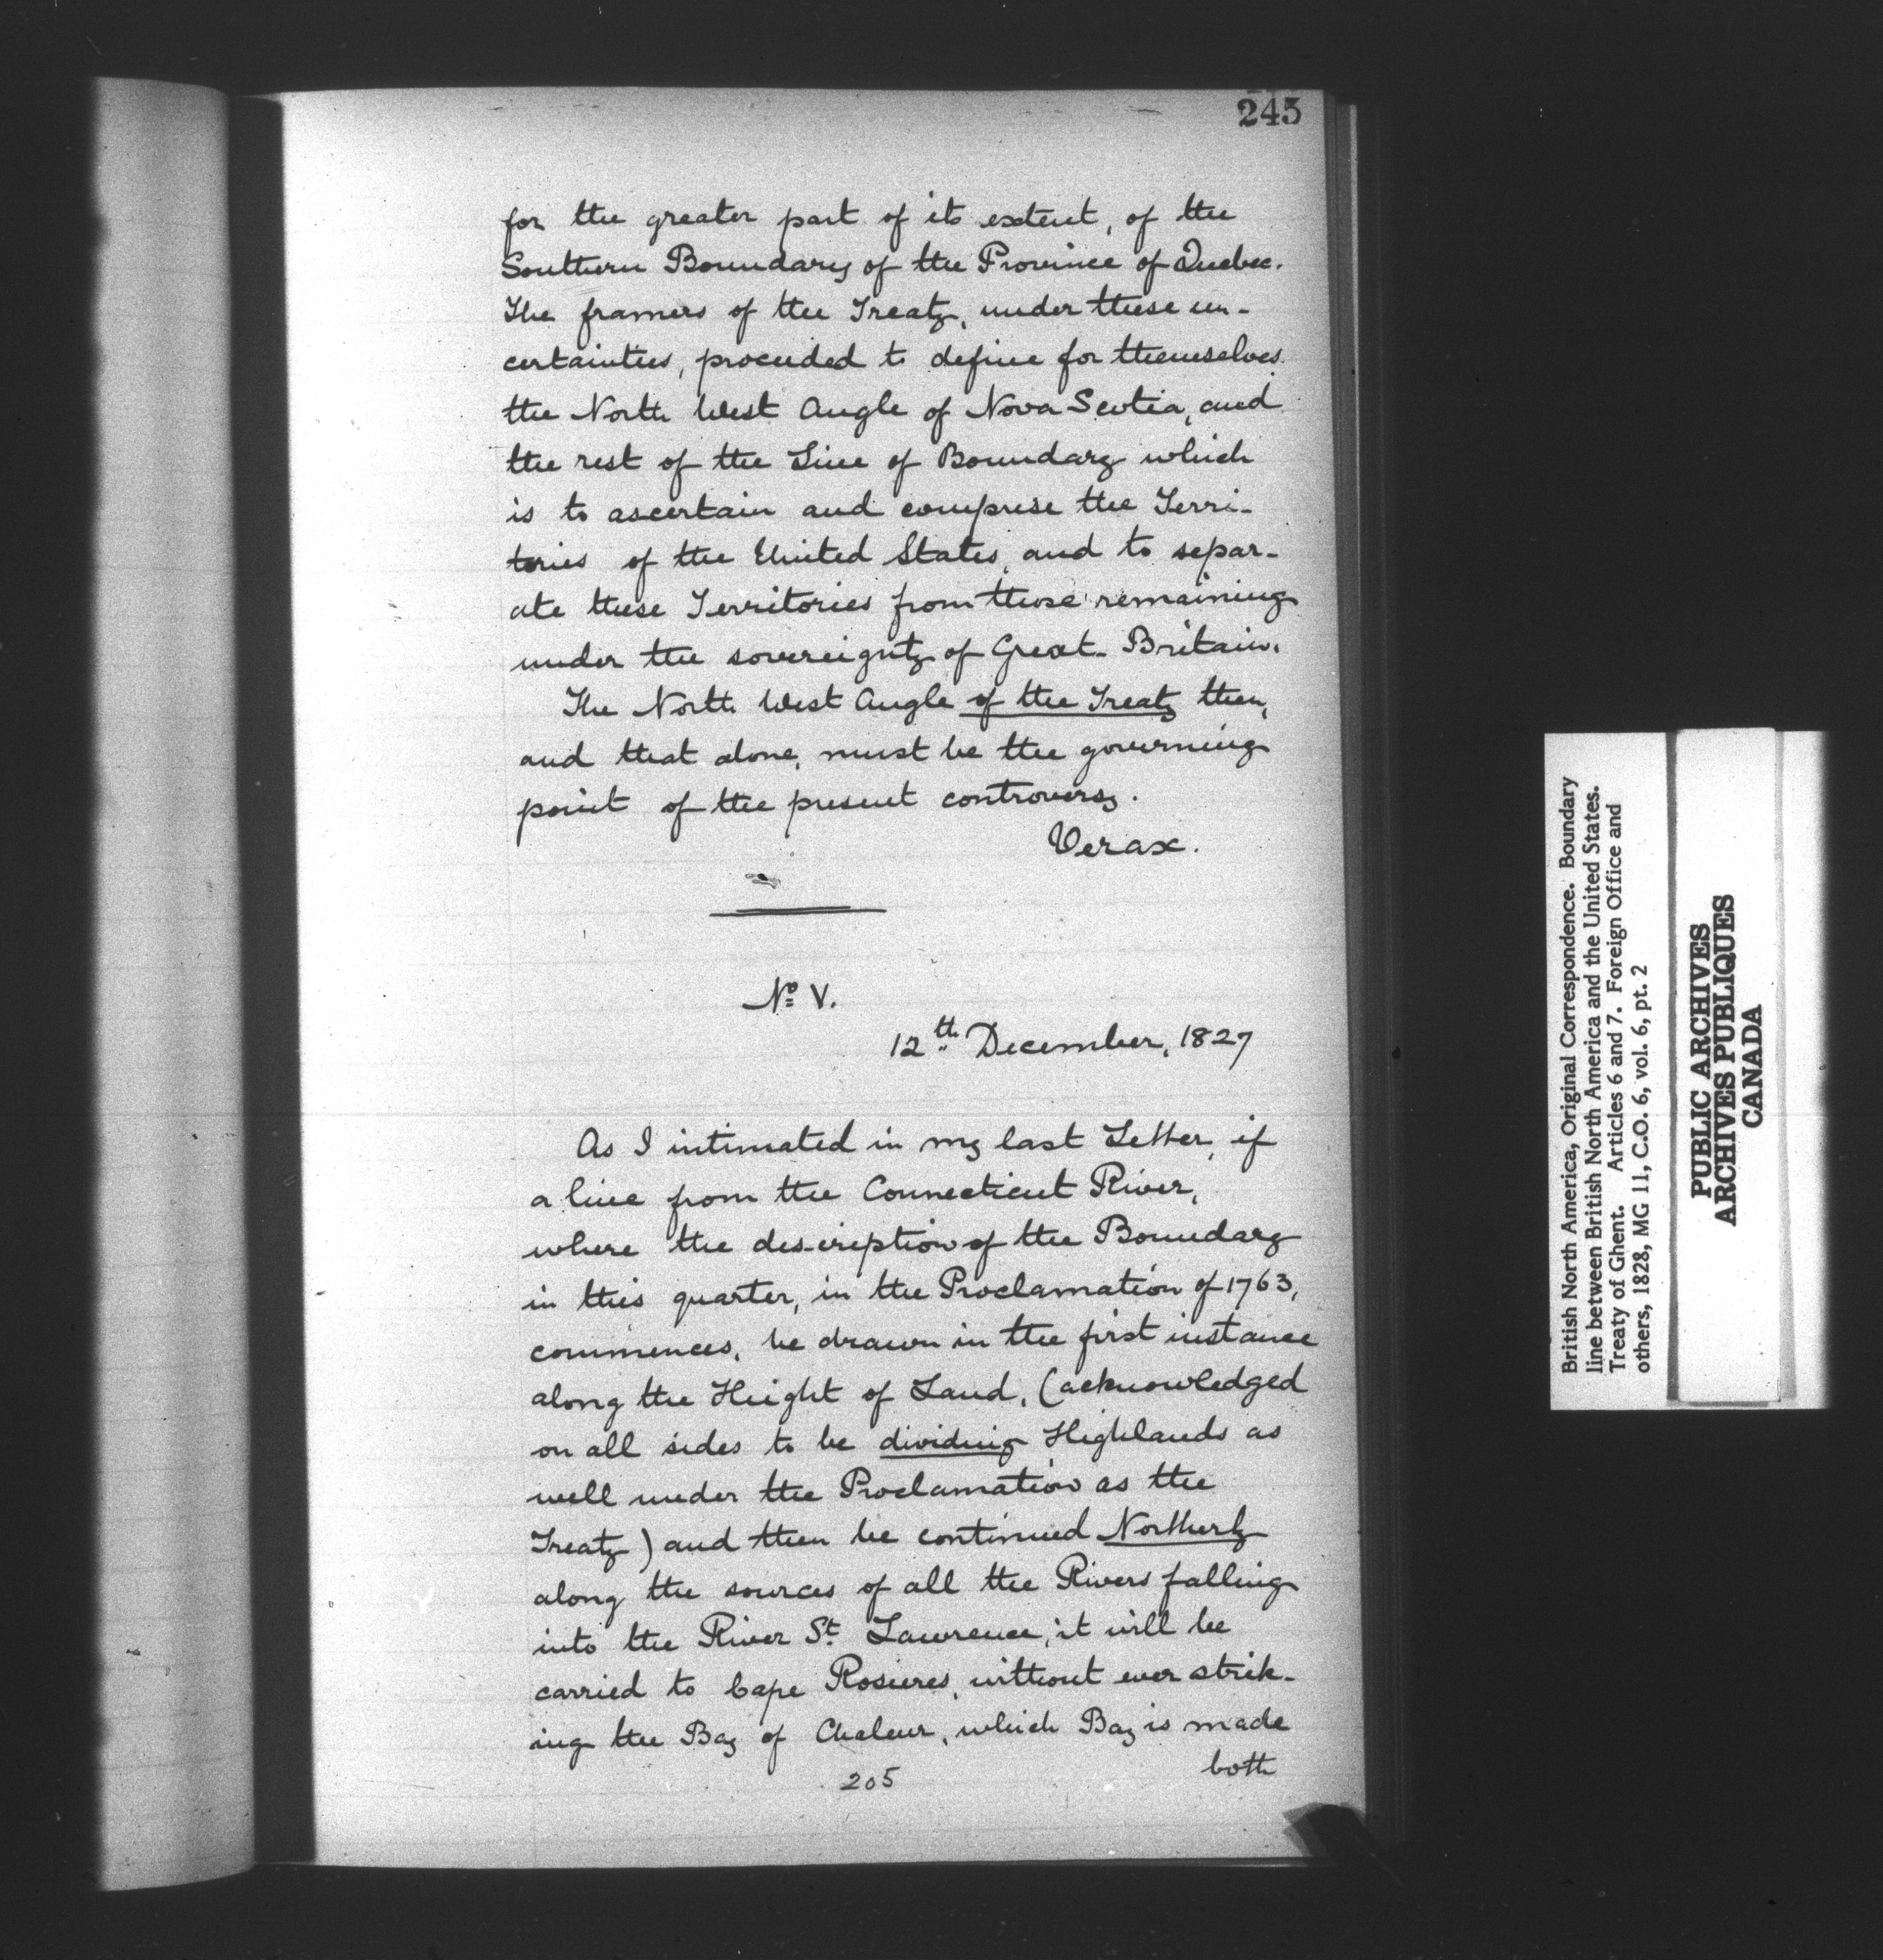 245
for the greater part of its extent, of the
Southern Boundary of the Province of Quebec.
The framers of the Treaty, under these un-
certainties, proceeded to define for themselves
the North West Angle of Nova Scotia, and
the rest of the Line of Boundary which
is to ascertain and comprise the Terri-
tories of the United States, and to separ-
ate these Territories from those remaining
under the sovereignty of Great-Britain.
The North West Angle of the Treaty then,
and that alone, must be the governing
point of the present controversy.
Verax.
No V.
12th December, 1827
As I intimated in my last Letter, if
a line from the Connecticut River,
where the description of the Boundary
in this quarter, in the Proclamation of 1763,
commences, be drawn in the first instance
along the Height of Land, (acknowledged
on all sides to be dividing Highlands as
well under the Proclamation as the
Treaty) and then be continued Northerly
along the sources of all the Rivers falling
into the River St. Lawrence, it will be
carried to Cape Rosieres, without ever strik-
ing the Bay of Chaleur, which Bay is made
both
205
British North America, Original Correspondence. Boundary
line between British North America and the United States.
Treaty of Ghent. Articles 6 and 7. Foreign Office and
others, 1828, MG 11, C.O. 6, vol. 6, pt. 2
PUBLIC ARCHIVES
ARCHIVES PUBLIQUES
CANADA